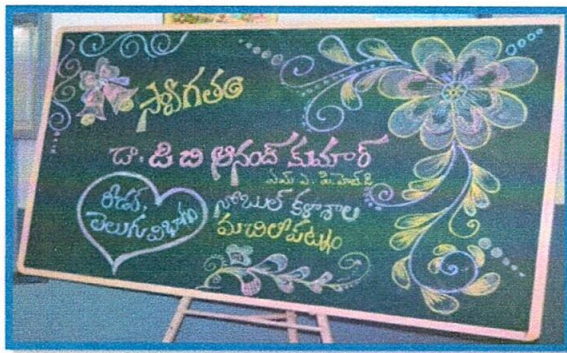 స్వాగతం
డా. డి బి ఆనంద్ కుమార్
ఎమ్.ఎ. పి.హెచ్.డి
రీడర్,
తెలుగు విభాగం
నోబుల్ కళాశాల
మచిలీపట్నం